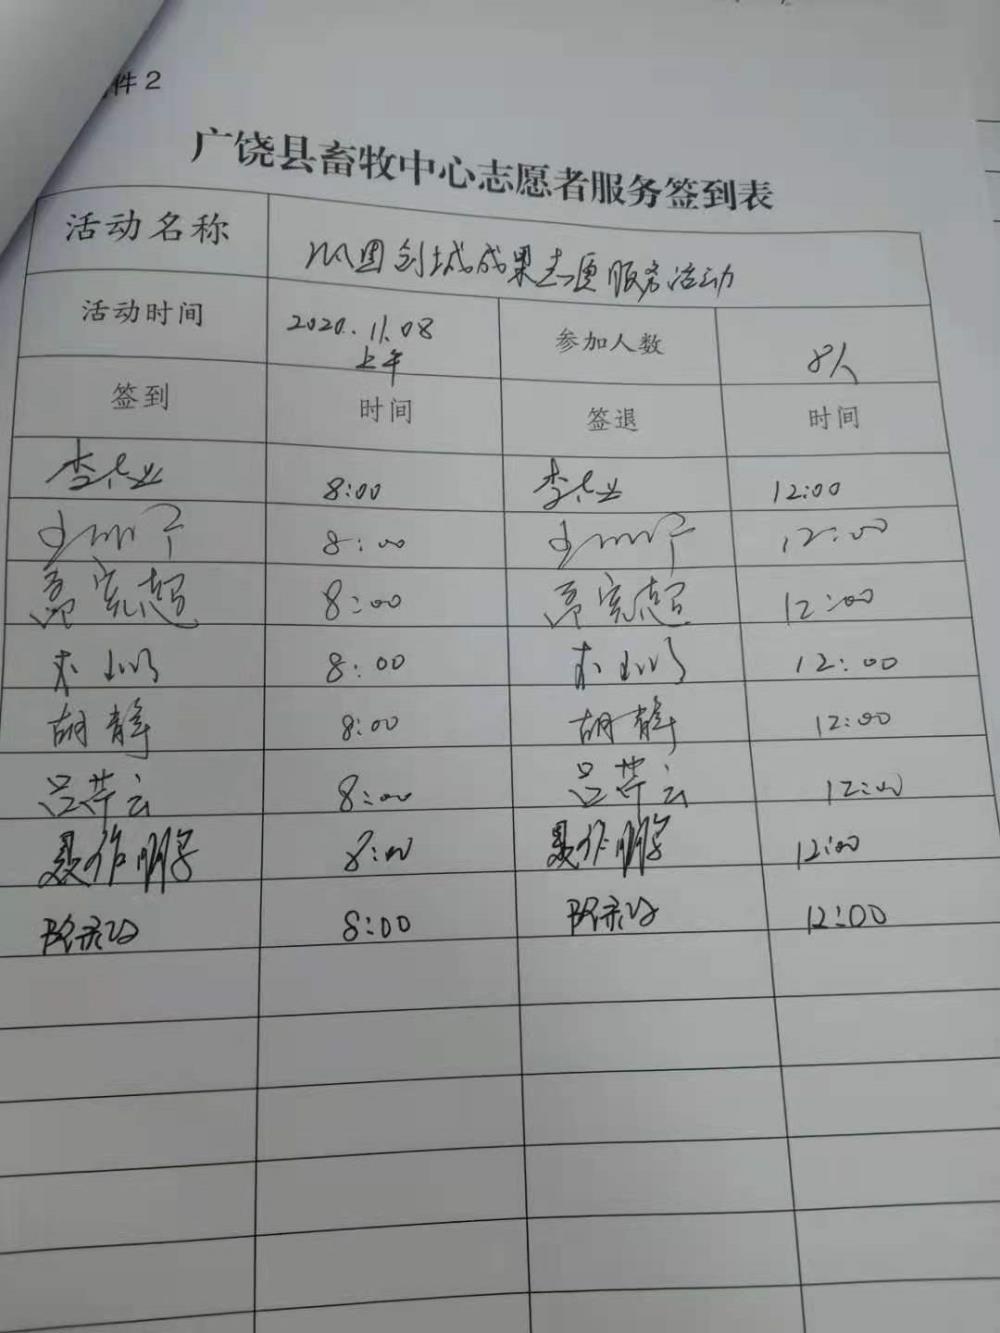 件2
广饶县畜牧中心志愿者服务签到表
活动名称 巩固创城成果志愿服务活动
活动时间 2020.11.08 上午 参加人数 8人
签到 时间 签退 时间
8:00 12:00
8:00 12:00
8:00 12:00
8:00 12:00
胡静 8:00 胡静 12:00
吕芹云 8:00 吕芹云 12:00
聂作鹏 8:00 聂作鹏 12:00
8:00 12:00